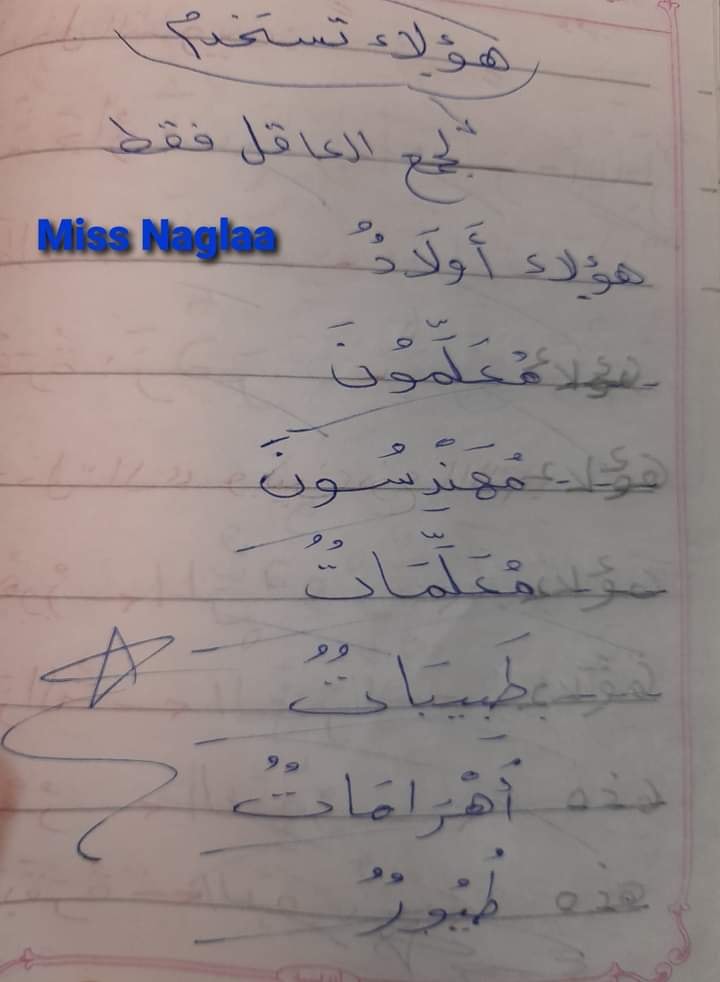 هؤلاء تستخدم
لجمع العاقل فقط
Miss Naglaa
هؤلاء أَولَادٌ
هؤلاء مُعَلِّمُونَ
هؤلاء مُهَنْدِسُونَ
هؤلاء مُعَلِّمَاتٌ
هؤلاء طَبِيبَاتٌ
هذه أَهْرَامَاتٌ
هذه طُيُورٌ